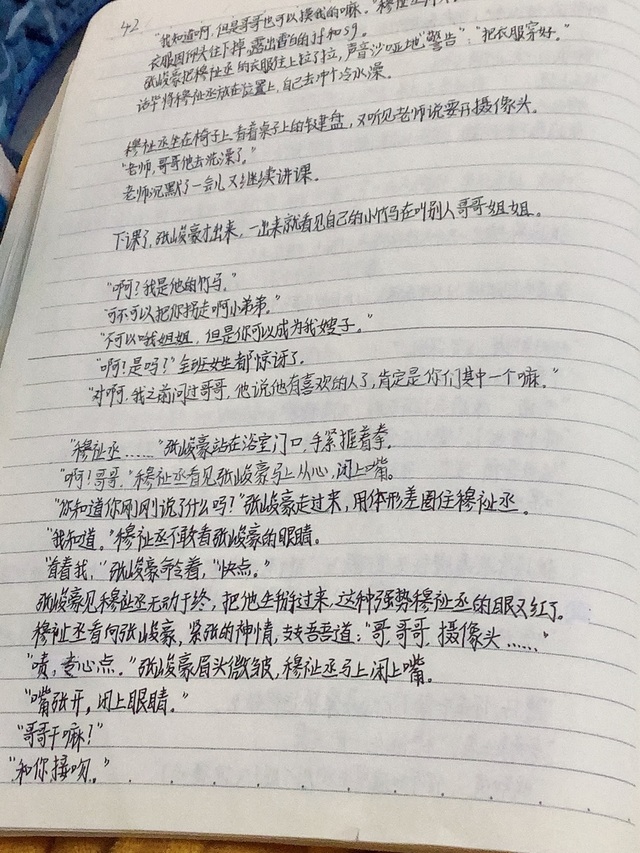 42
"我知道啊,但是哥哥也可以摸我的嘛。"穆祉丞
衣服因仰头往下掉,露出雪白的
张峻豪把穆祉丞的衣服往上拉了拉,声音沙哑地"警告":"把衣服穿好。"
话毕将穆祉丞放在位置上,自己去冲个冷水澡。
穆祉丞坐在椅子上看着桌子上的键盘,又听见老师说要开摄像头。
"老师,哥哥他去洗澡了。"
老师沉默了一会儿又继续讲课。
下课了,张峻豪才出来,一出来就看见自己的小竹马在叫别人哥哥姐姐。
"啊?我是他的竹马。"
"可不可以把你拐走啊小弟弟。"
"不可以哦姐姐,但是你可以成为我嫂子。"
"啊?是吗?"全班女生都惊讶了。
"对啊,我之前问过哥哥,他说他有喜欢的人了,肯定是你们其中一个嘛。"
"穆祉丞……"张峻豪站在浴室门口,手紧握着拳。
"啊?哥哥,"穆祉丞看见张峻豪马上从心,闭上嘴。
"你知道你刚刚说了什么吗?"张峻豪走过来,用体形差圈住穆祉丞。
"我知道。"穆祉丞不敢看张峻豪的眼睛。
"看着我,"张峻豪命令着,"快点。"
张峻豪见穆祉丞无动于终,把他生掰过来,这种强势穆祉丞的眼又红了。
穆祉丞看向张峻豪,紧张的神情,支支吾吾道:"哥,哥哥,摄像头……"
"啧,专心点。"张峻豪眉头微皱,穆祉丞马上闭上嘴。
"嘴张开,闭上眼睛。"
"哥哥干嘛?"
"和你接吻。"